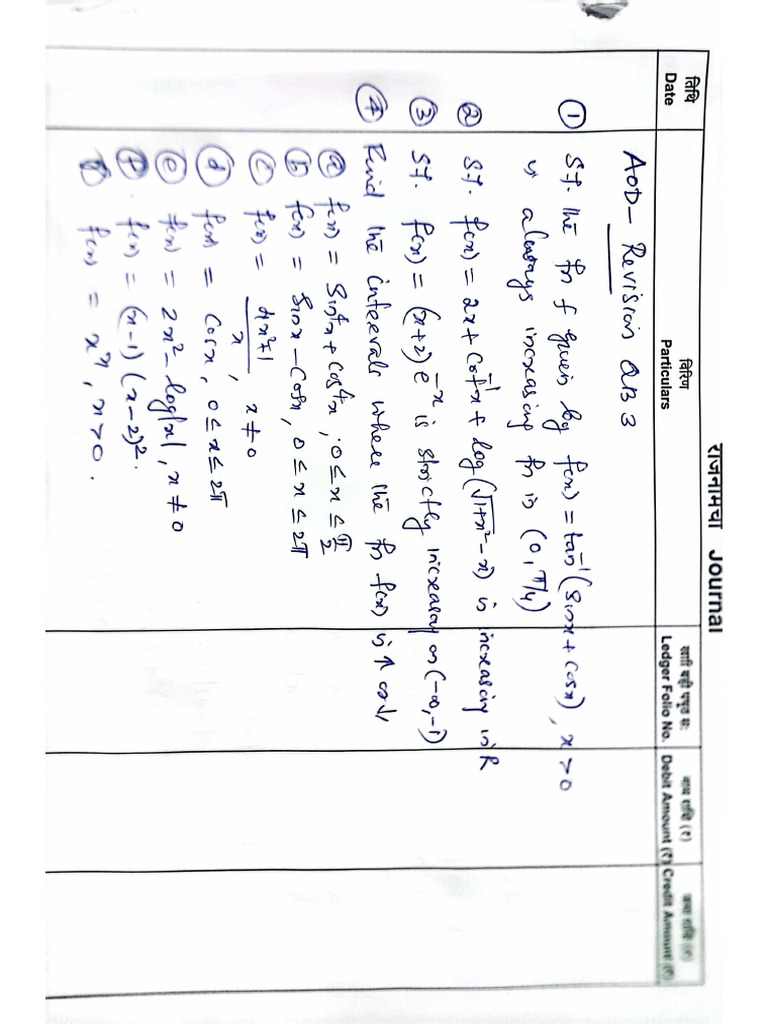 राजनामचा Journal
तिथि Date
विवरण Particulars
Ledger Folio No.
Debit Amount (₹)
Credit Amount (₹)
AOD - Revision QB 3
① S.T. the fn f given by f(x) = tan⁻¹(sinx + cosx), x > 0
is always increasing fn in (0, π/4)
② S.T. f(x) = 2x + cot⁻¹x + log(√1+x² - x) is increasing in R
③ S.T. f(x) = (x+2)e⁻ˣ is strictly increasing on (-∞, -1)
④ Find the intervals where the fn f(x) is ↑ or ↓
ⓐ f(x) = Sin⁴x + Cos⁴x, 0 ≤ x ≤ π/2
ⓑ f(x) = Sinx - Cosx, 0 ≤ x ≤ 2π
ⓒ f(x) = (4x²+1)/x, x ≠ 0
ⓓ f(x) = Cosx, 0 ≤ x ≤ 2π
ⓔ f(x) = 2x² - log|x|, x ≠ 0
f. f(x) = (x-1)(x-2)².
f(x) = xˣ, x > 0.